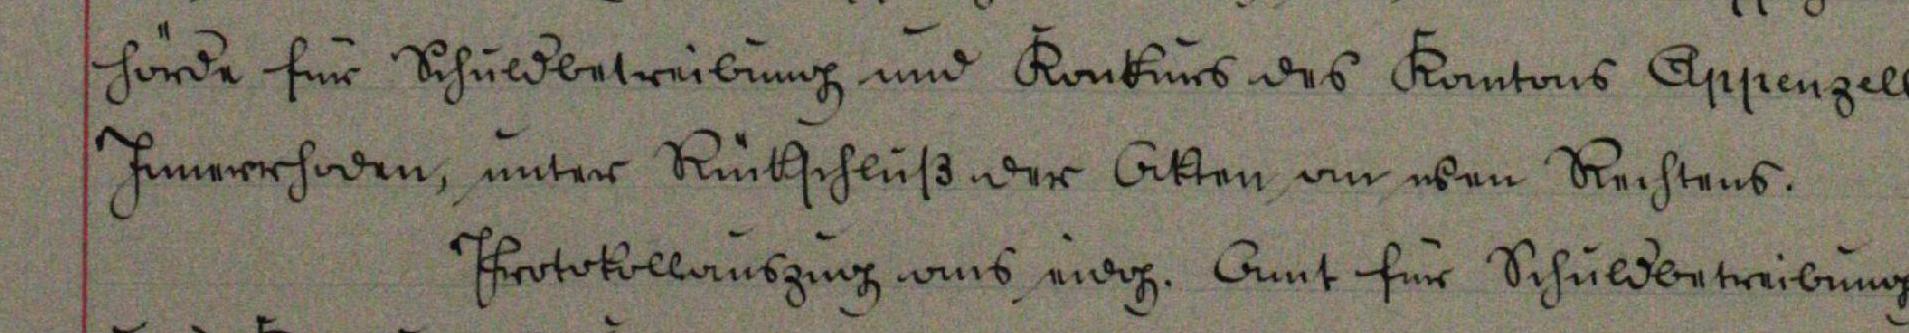 hörde für Schuldbetreibung und Konkurs des Kantons Appenzell
Innerrhoden, unter Rückschluß der Akten an wen Rechtens.
Protokollauszug ans eidg. Amt für Schuldbetreibung